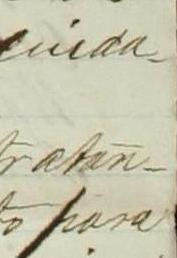 cuida-
tratan-
to para